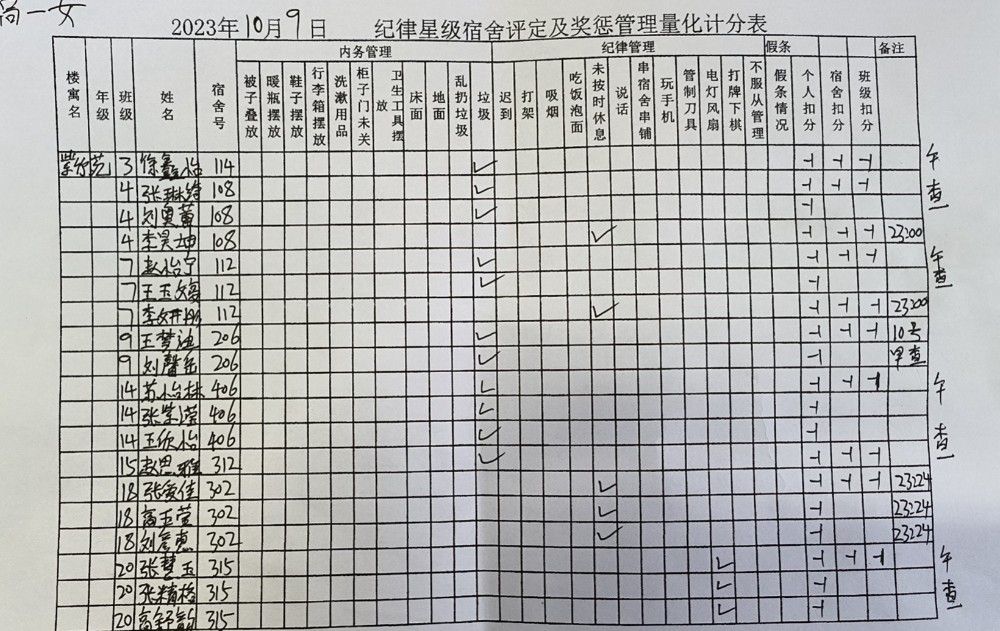 高一女
2023年10月9日 纪律星级宿舍评定及奖惩管理量化计分表
内务管理 纪律管理 假条 备注
楼寓名 年级 班级 姓名 宿舍号 被子叠放 暖瓶摆放 鞋子摆放 行李箱摆放 洗漱用品 柜子门未关 卫生工具摆放 床面 地面 乱扔垃圾 垃圾 迟到 打架 吸烟 吃饭泡面 未按时休息 说话 串宿舍串铺 玩手机 管制刀具 电灯风扇 打牌下棋 不服从管理 假条情况 个人扣分 宿舍扣分 班级扣分
紫竹苑 3 徐鑫怡 114 ✓ -1 -1 -1 午
4 张琳绮 108 ✓ -1 -1 -1 查
4 刘奥蕾 108 ✓ -1
4 李昊坤 108 ✓ -1 -1 -1 23:00
7 赵怡宁 112 ✓ -1 -1 -1 午
7 王玉 112 ✓ -1 查
7 李妍彤 112 ✓ -1 -1 -1 23:00
9 王梦迪 206 ✓ -1 -1 -1 10号
9 刘馨 206 ✓ -1 早查
14 苏怡林 406 ✓ -1 -1 -1 午
14 张紫莹 406 ✓ -1
14 王欣怡 406 ✓ -1 查
15 赵思雅 312 ✓ -1 -1 -1
18 张爱佳 302 ✓ -1 -1 -1 23:24
18 高玉莹 302 ✓ -1 23:24
18 刘彦惠 302 ✓ -1 23:24
20 张慧玉 315 ✓ -1 -1 -1 午
20 张精格 315 ✓ -1
20 高舒韵 315 ✓ -1 查